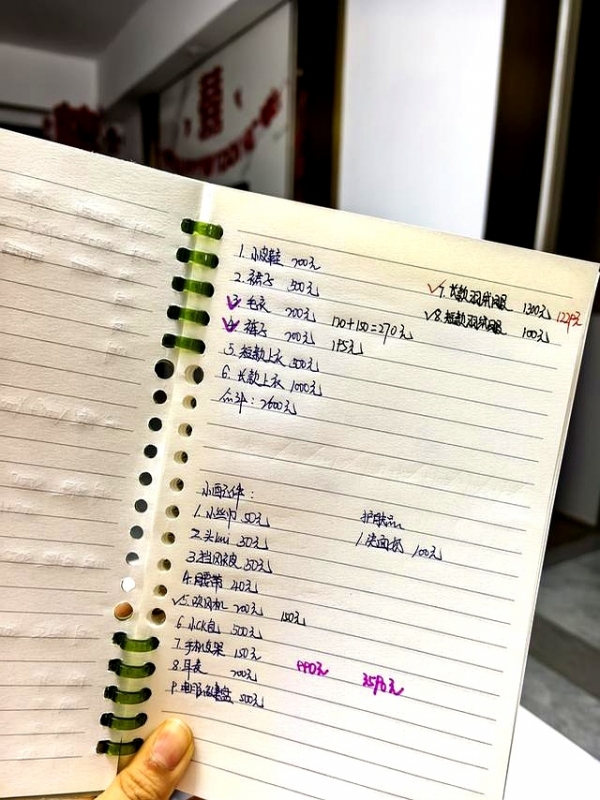 1. 小皮鞋 200元
2. 裙子 500元
3. 毛衣 200元 120+150=270元
4. 裤子 200元 175元
5. 短款上衣 500元
6. 长款上衣 1000元
合计：2600元
7. 长款羽绒服 1300元
8. 短款羽绒服 100元
小配件：
1. 小丝巾 50元
2. 头 30元
3. 挡风被 50元
4. 腰带 40元
5. 吹风机 200元 150元
6. 小ck包 500元
7. 手机支架 150元
8. 耳 200元
9. 键盘 500元
护肤品
1. 洗面奶 100元
囍